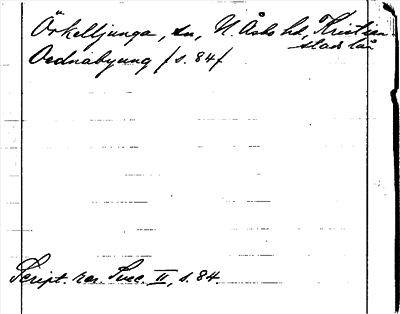 Örkelljunga, sn, N. Åsbo hd, Kristian-
stads län
Oednabyung /s. 84/
Script. rer. Svec. II, s. 84.